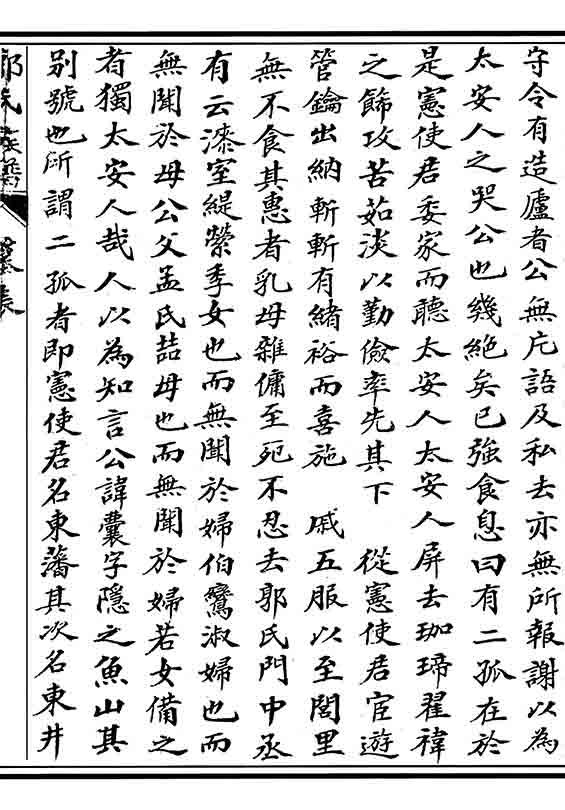 守令有造廬者公無片語及私去亦無所報謝以為
太安人之哭公也幾絶矣已強食息曰有二孤在於
是憲使君委家而聽太安人太安人屏去珈瑱翟褘
之飾攻苦茹淡以勤儉率先其下 從憲使君宦遊
管鑰出納斬斬有緒裕而喜施 戚五服以至閭里
無不食其惠者乳母雜傭至死不忍去郭氏門中丞
有云漆室緹縈季女也而無聞於婦伯鸞淑婦也而
無聞於母公父孟氏喆母也而無聞於婦若女備之
者獨太安人哉人以為知言公諱囊字隱之魚山其
別號也所謂二孤者即憲使君名東藩其次名東井